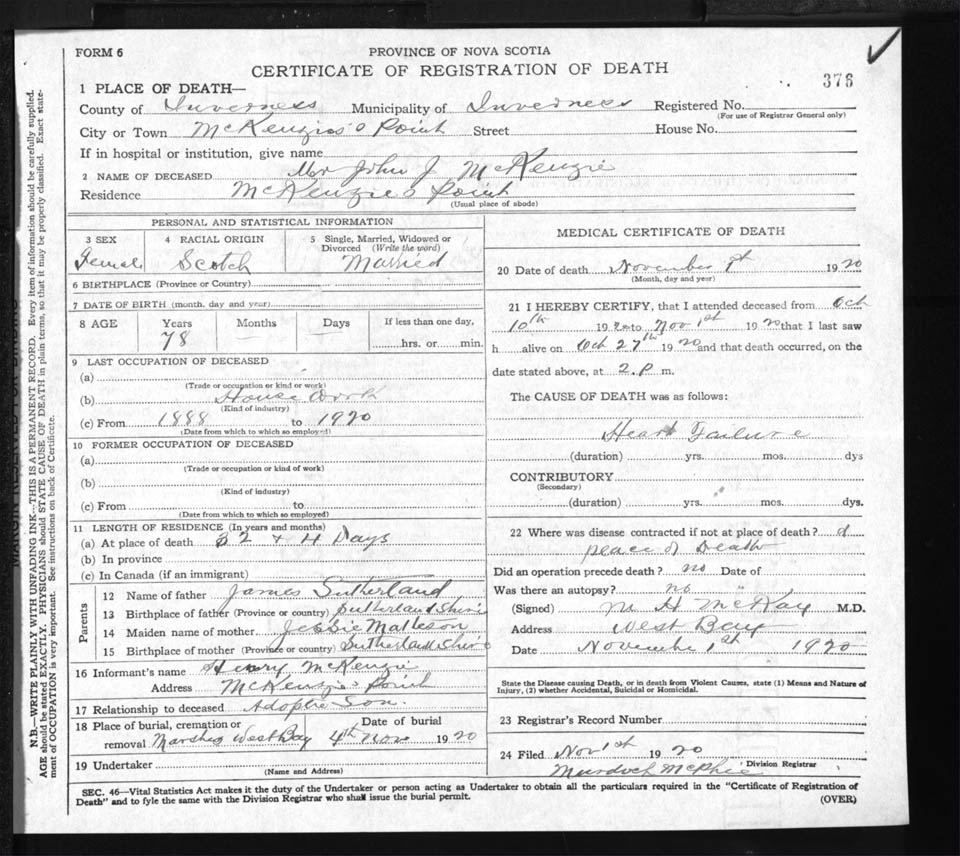 FORM 6
PROVINCE OF NOVA SCOTIA
CERTIFICATE OF REGISTRATION OF DEATH
376
1 PLACE OF DEATH—
County of Inverness Municipality of Inverness Registered No.
(For use of Registrar General only)
City or Town McKenzies's Point Street House No.
If in hospital or institution, give name
2 NAME OF DECEASED Mrs John J. McKenzie
Residence McKenzie's Point
(Usual place of abode)
PERSONAL AND STATISTICAL INFORMATION
3 SEX 4 RACIAL ORIGIN 5 Single, Married, Widowed or
Divorced (Write the word)
Female Scotch Married
6 BIRTHPLACE (Province or Country)
7 DATE OF BIRTH (month, day and year)
8 AGE Years Months Days If less than one day,
78 hrs. or min.
9 LAST OCCUPATION OF DECEASED
(a)
(Trade or occupation or kind or work)
(b) House Work
(Kind of industry)
(c) From 1888 to 1920
(Date from which to which so employed)
10 FORMER OCCUPATION OF DECEASED
(a)
(Trade or occupation or kind of work)
(b)
(Kind of industry)
(c) From to
(Date from which to which so employed)
11 LENGTH OF RESIDENCE (In years and months)
(a) At place of death 32 + 4 Days
(b) In province
(c) In Canada (if an immigrant)
Parents
12 Name of father James Sutherland
13 Birthplace of father (Province or country) Sutherland Shire
14 Maiden name of mother Jessie Matteson
15 Birthplace of mother (Province or country) Sutherland Shire
16 Informant's name Henry McKenzie
Address McKenzie's Point
17 Relationship to deceased Adopted Son.
18 Place of burial, cremation or Date of burial
removal Marshes West Bay 4th Nov 1920
19 Undertaker
(Name and Address)
MEDICAL CERTIFICATE OF DEATH
20 Date of death November 1st 1920
(Month, day and year)
21 I HEREBY CERTIFY, that I attended deceased from Oct
10th 1920 to Nov 1st 1920 that I last saw
h alive on Oct 27th 1920 and that death occurred, on the
date stated above, at 2.P m.
The CAUSE OF DEATH was as follows:
Heart Failure
(duration) yrs. mos. dys
CONTRIBUTORY
(Secondary)
(duration) yrs. mos. dys.
22 Where was disease contracted if not at place of death?
place of Death
Did an operation precede death? no Date of
Was there an autopsy? no
(Signed) M H McKay M.D.
Address West Bay
Date November 1st 1920
State the Disease causing Death, or in death from Violent Causes, state (1) Means and Nature of
Injury, (2) whether Accidental, Suicidal or Homicidal.
23 Registrar's Record Number
24 Filed Nov 1st 1920
Murdoch McPhie Division Registrar
SEC. 46—Vital Statistics Act makes it the duty of the Undertaker or person acting as Undertaker to obtain all the particulars required in the "Certificate of Registration of
Death" and to fyle the same with the Division Registrar who shall issue the burial permit.
(OVER)
N.B.—WRITE PLAINLY WITH UNFADING INK—THIS IS A PERMANENT RECORD. Every item of information should be carefully supplied.
AGE should be stated EXACTLY. PHYSICIANS should STATE CAUSE OF DEATH in plain terms, so that it may be properly classified. Exact state-
ment of OCCUPATION is very important. See instructions on back of Certificate.